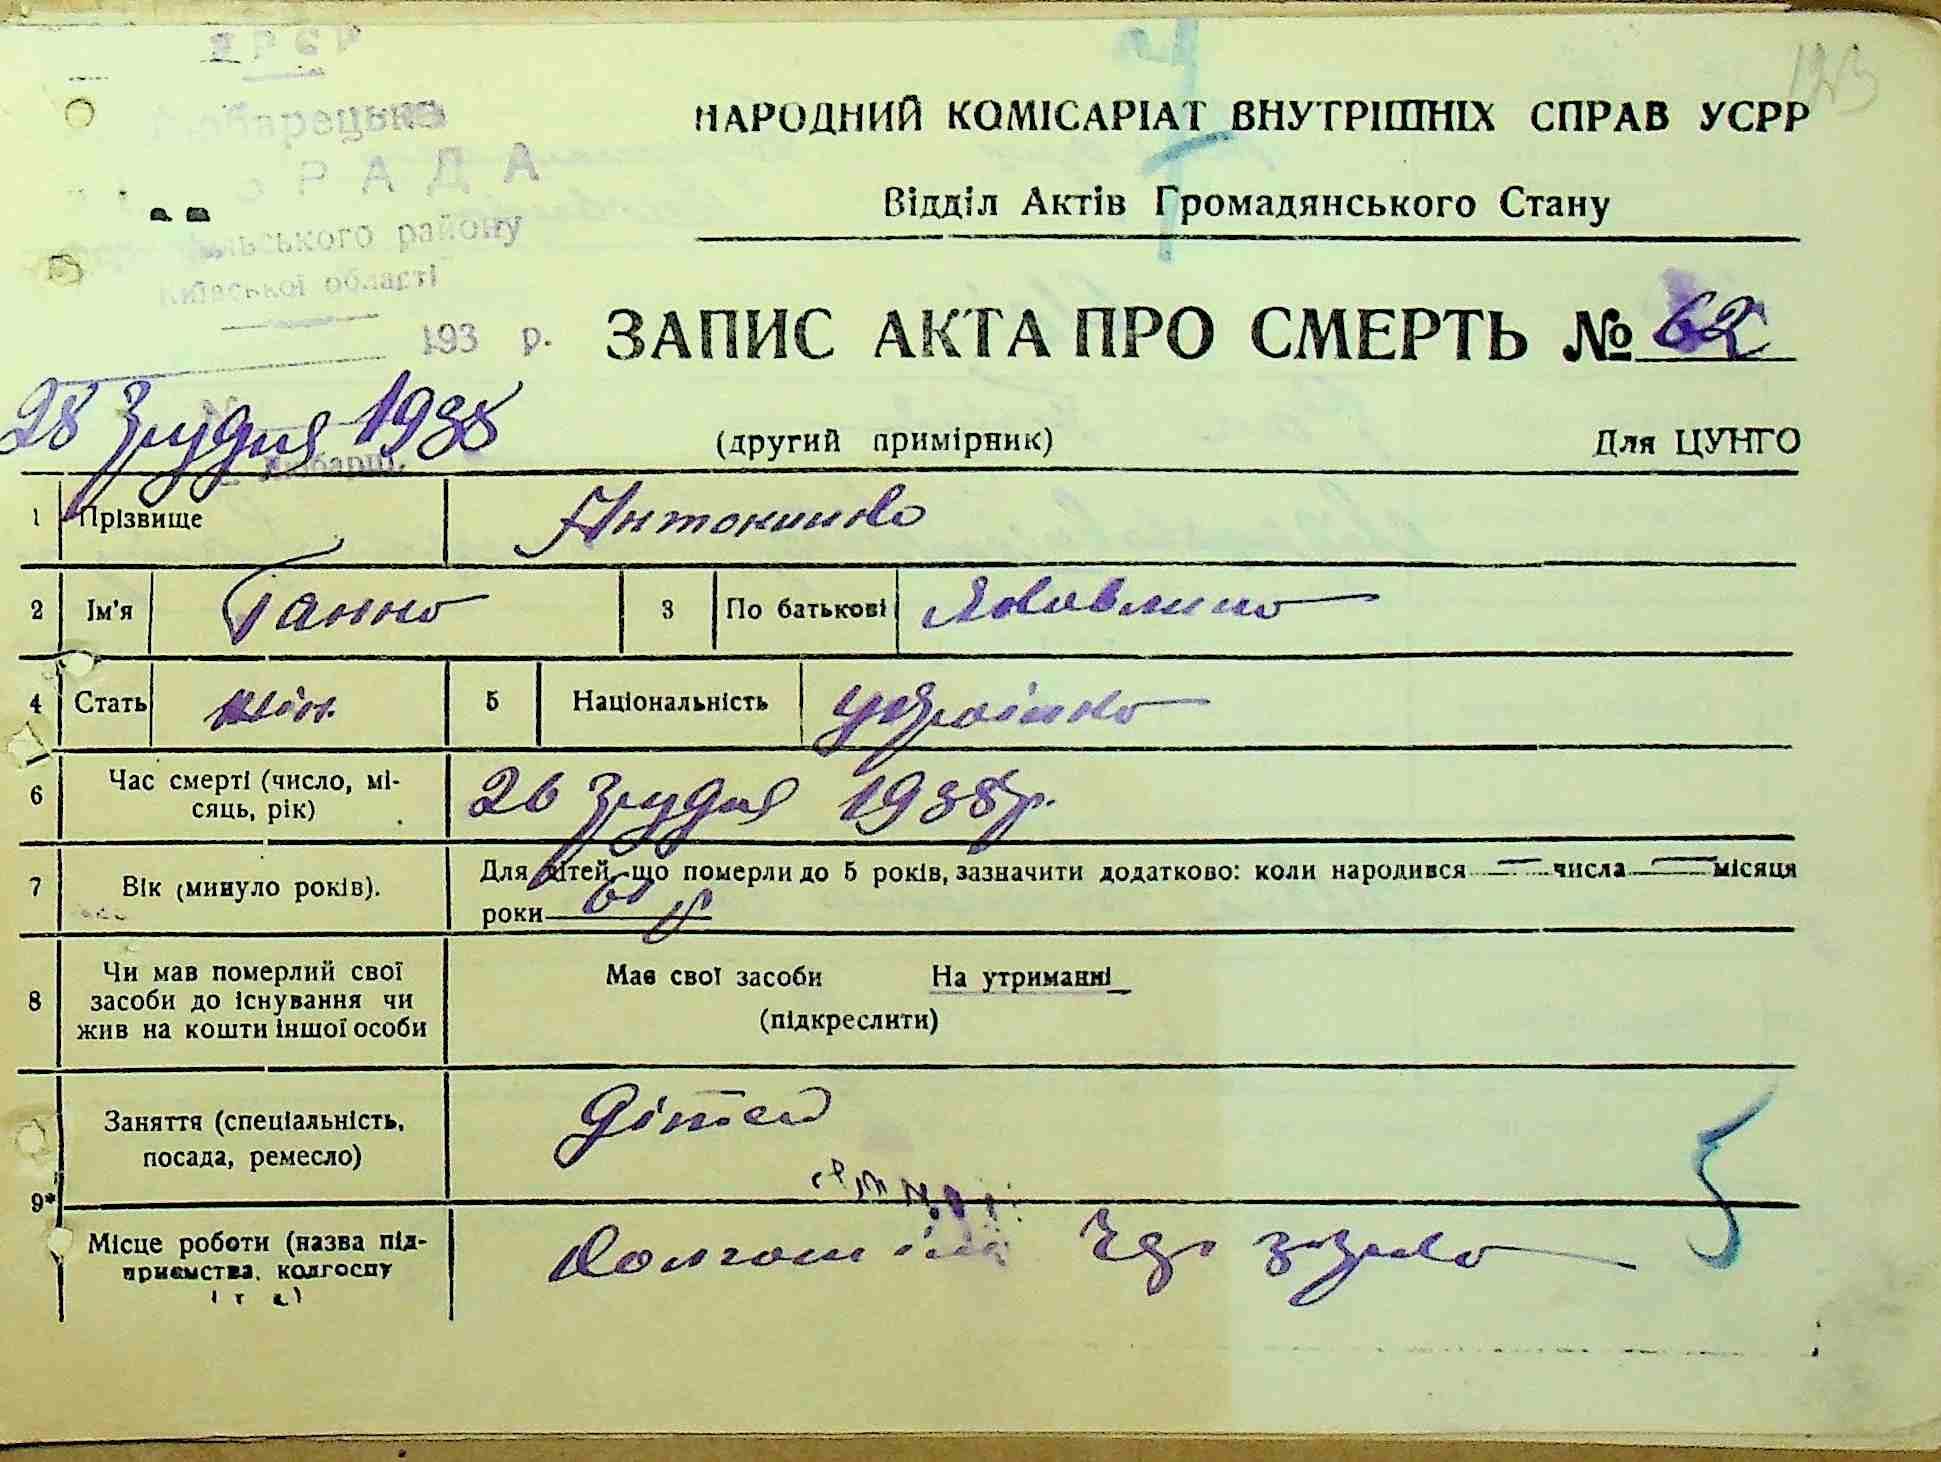 УРСР
123
Любарецька
РАДА
НАРОДНИЙ КОМІСАРІАТ ВНУТРІШНІХ СПРАВ УСРР
Відділ Актів Громадянського Стану
району
Київської області
193 р.
ЗАПИС АКТА ПРО СМЕРТЬ № 62
28 Грудня 1938
Любарці.
(другий примірник) Для ЦУНГО
1 Прізвище
2 Ім'я Ганна 3 По батькові Яковлівна
4 Стать жін. 5 Національність українка
6 Час смерті (число, мі-
сяць, рік) 26 Грудня 1938 р.
7 Вік (минуло років). Для дітей, що померли до 5 років, зазначити додатково: коли народився — числа — місяця
роки
8 Чи мав померлий свої
засоби до існування чи
жив на кошти іншої особи
Має свої засоби На утриманні
(підкреслити)
Заняття (спеціальність,
посада, ремесло) дітей
9* 5
Місце роботи (назва під-
приємства, колгоспу
і т. д.)